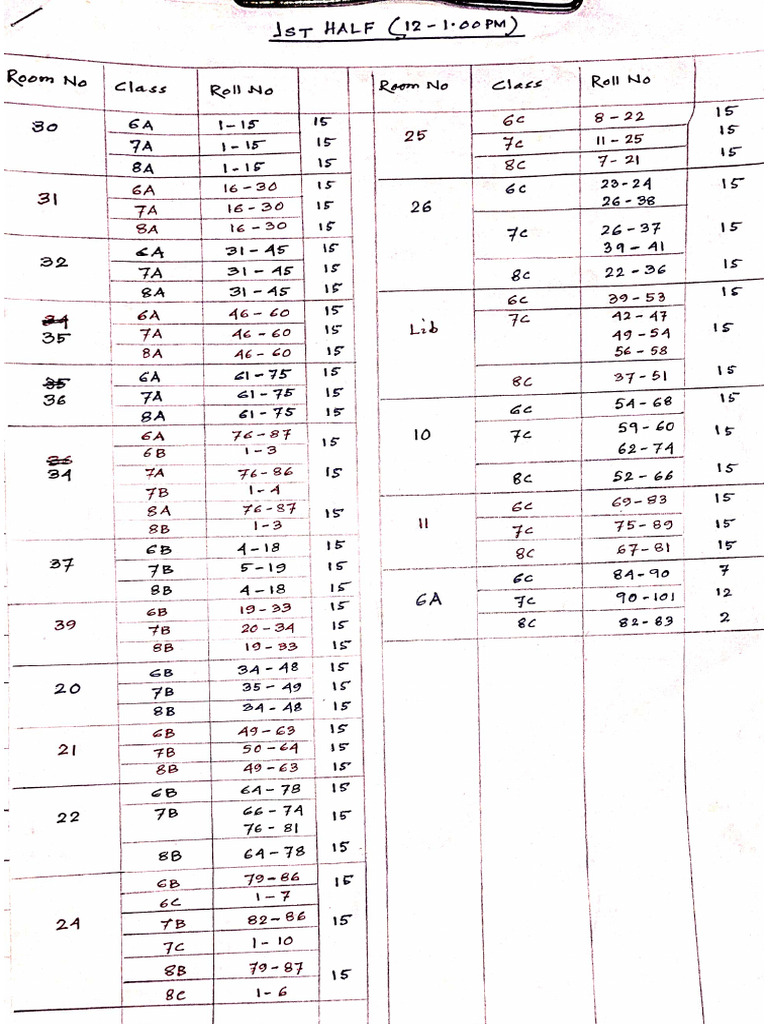 1ST HALF (12-1.00PM)
Room No Class Roll No
30 6A 1-15 15
7A 1-15 15
8A 1-15 15
31 6A 16-30 15
7A 16-30 15
8A 16-30 15
32 6A 31-45 15
7A 31-45 15
8A 31-45 15
34 6A 46-60 15
35 7A 46-60 15
8A 46-60 15
35 6A 61-75 15
36 7A 61-75 15
8A 61-75 15
6A 76-87 15
36 6B 1-3
34 7A 76-86 15
7B 1-4
8A 76-87 15
8B 1-3
37 6B 4-18 15
7B 5-19 15
8B 4-18 15
39 6B 19-33 15
7B 20-34 15
8B 19-33 15
20 6B 34-48 15
7B 35-49 15
8B 34-48 15
21 6B 49-63 15
7B 50-64 15
8B 49-63 15
22 6B 64-78 15
7B 66-74 15
76-81
8B 64-78 15
24 6B 79-86 15
6C 1-7
7B 82-86 15
7C 1-10
8B 79-87 15
8C 1-6
Room No Class Roll No
25 6C 8-22 15
7C 11-25 15
8C 7-21 15
26 6C 23-24 15
26-38
7C 26-37 15
39-41
8C 22-36 15
Lib 6C 39-53 15
7C 42-47
49-54 15
56-58
8C 37-51 15
10 6C 54-68 15
7C 59-60 15
62-74
8C 52-66 15
11 6C 69-83 15
7C 75-89 15
8C 67-81 15
6A 6C 84-90 7
7C 90-101 12
8C 82-83 2